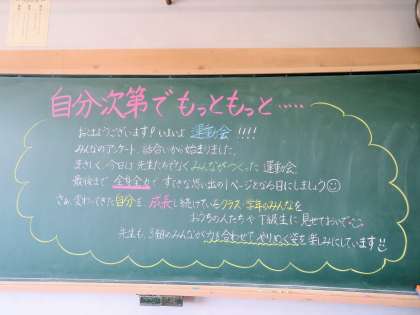 自分次第でもっともっと……
おはようございます!! いよいよ 運動会 !!!!
みんなのアンケート、話合いから始まりました。
まさしく、今日は先生たちでなくみんながつくった運動会。
最後まで 全身全力で すてきな思い出の1ページとなる日にしましょう
さぁ、変わってきた自分を、成長し続けているクラス、学年のみんなを
おうちの人たちや下級生に見せておいで
先生も、3組のみんなが力を合わせてやりぬく姿を楽しみにしています!!